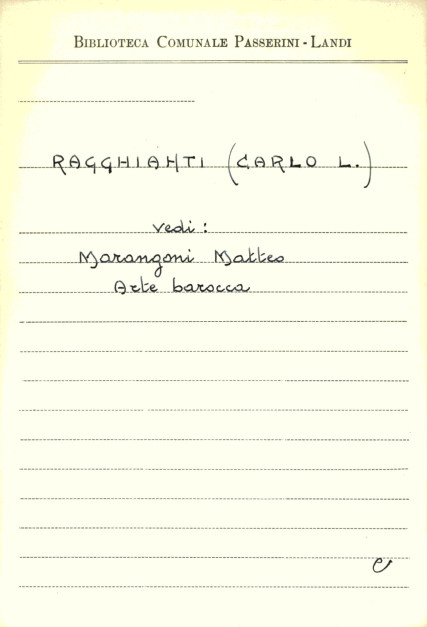 BIBLIOTECA COMUNALE PASSERINI - LANDI
RAGGHIANTI (CARLO L.)
vedi :
Marangoni Matteo
Arte barocca